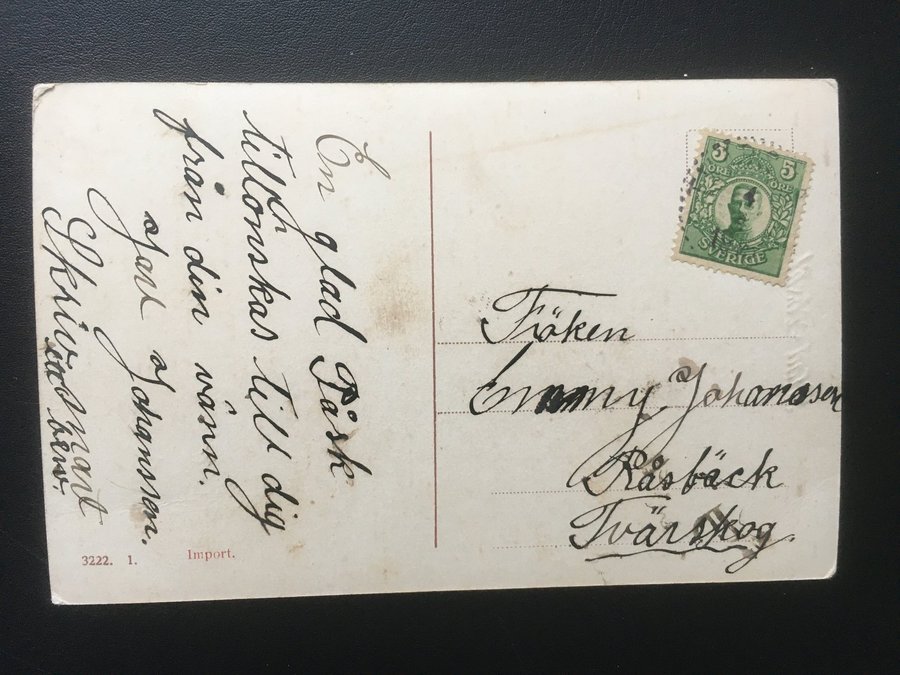 En glad Påsk
tillönskas till dig
från din vänn.
Johansson.
Skriv snart
brev.
3222. 1. Import.
5 5
ÖRE ÖRE
SVERIGE
Fröken
Emmy Johansson
Råsbäck
Tvärskog.